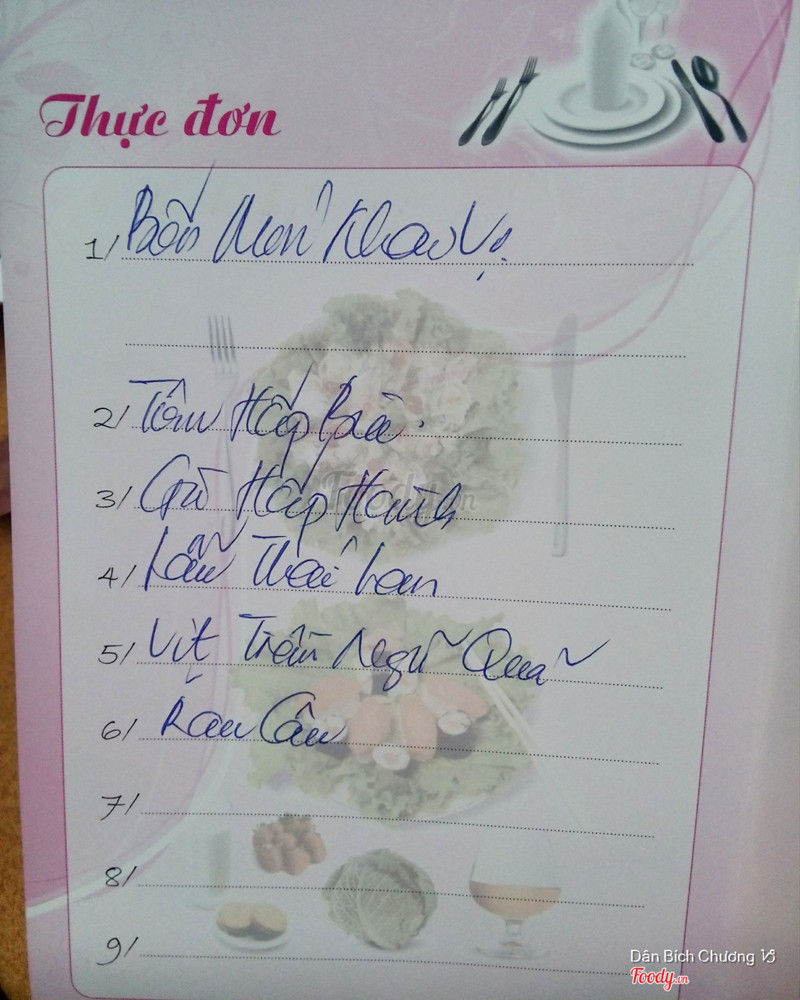 Thực đơn
1/ Bốn Món Khai Vị
2/ Tôm Hấp Bia.
3/ Gà Hấp Hành
4/ Lẩu Thái Lan
5/ Vịt Tiềm Ngũ Quả
6/ Rau Câu
7/
8/
9/
Foody.vn
Dân Bích Chương
Foody.vn